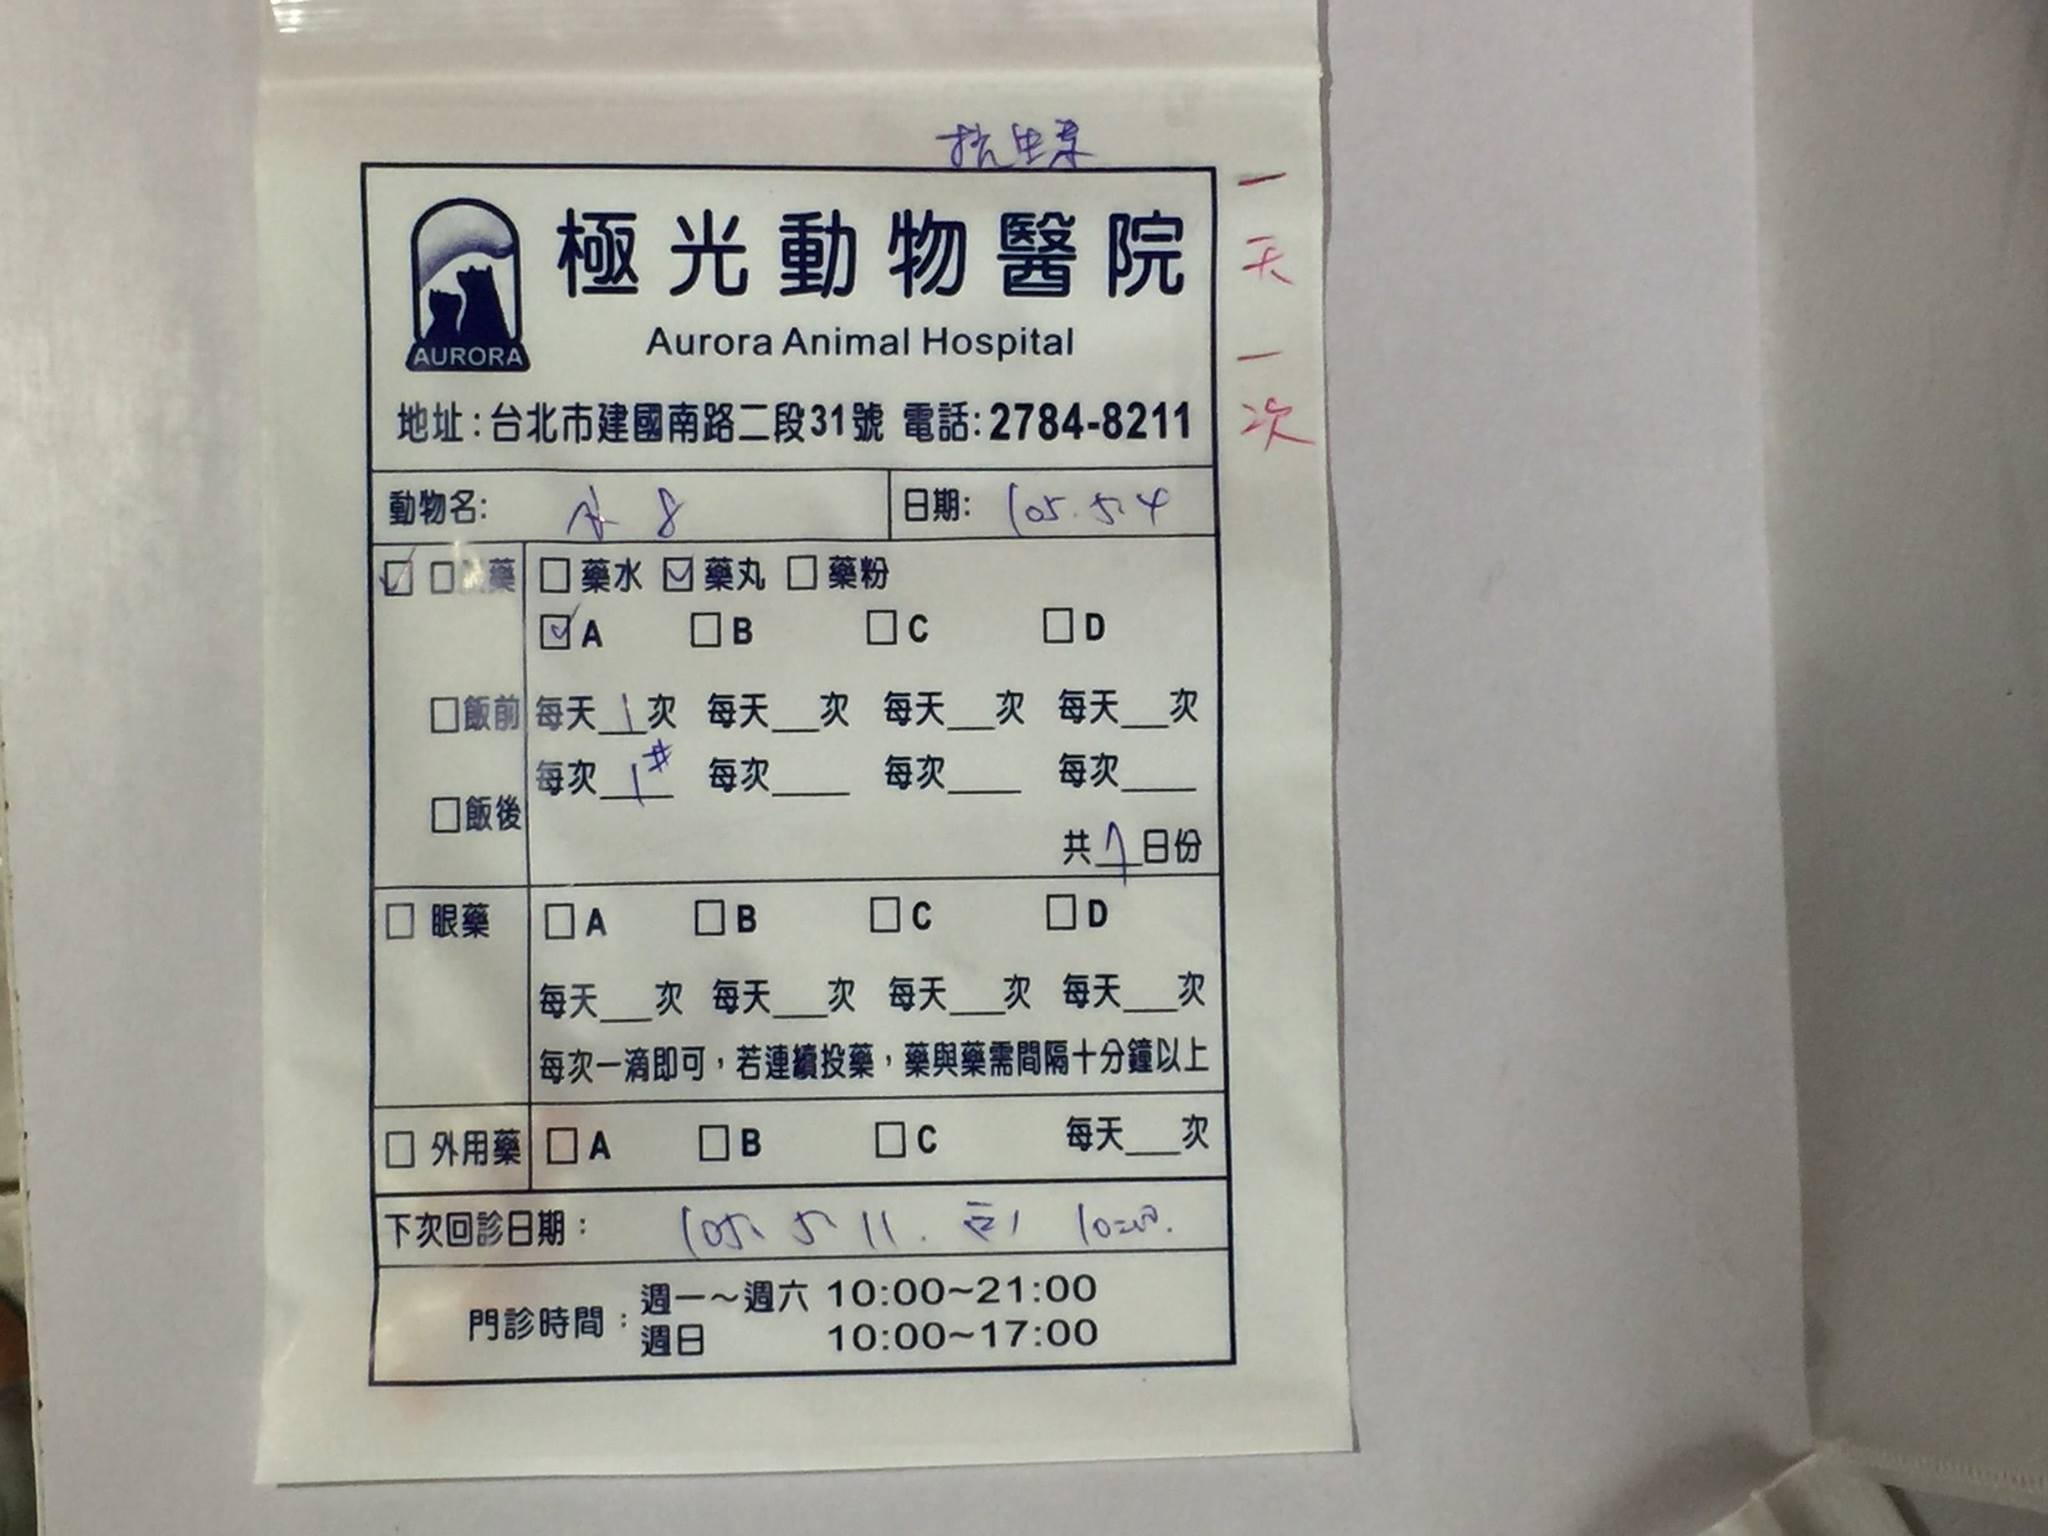 一天一次
極光動物醫院
AURORA
Aurora Animal Hospital
地址:台北市建國南路二段31號 電話:2784-8211
動物名: 8 日期: 105.5.4
☑ □ 藥 □ 藥水 ☑ 藥丸 □ 藥粉
☑ A □ B □ C □ D
□ 飯前 每天 1 次 每天___次 每天___次 每天___次
每次 1# 每次____ 每次____ 每次____
□ 飯後
共 7 日份
□ 眼藥 □ A □ B □ C □ D
每天___次 每天___次 每天___次 每天___次
每次一滴即可,若連續投藥,藥與藥需間隔十分鐘以上
□ 外用藥 □ A □ B □ C 每天___次
下次回診日期: 105. 5. 11.
門診時間: 週一~週六 10:00~21:00
週日 10:00~17:00